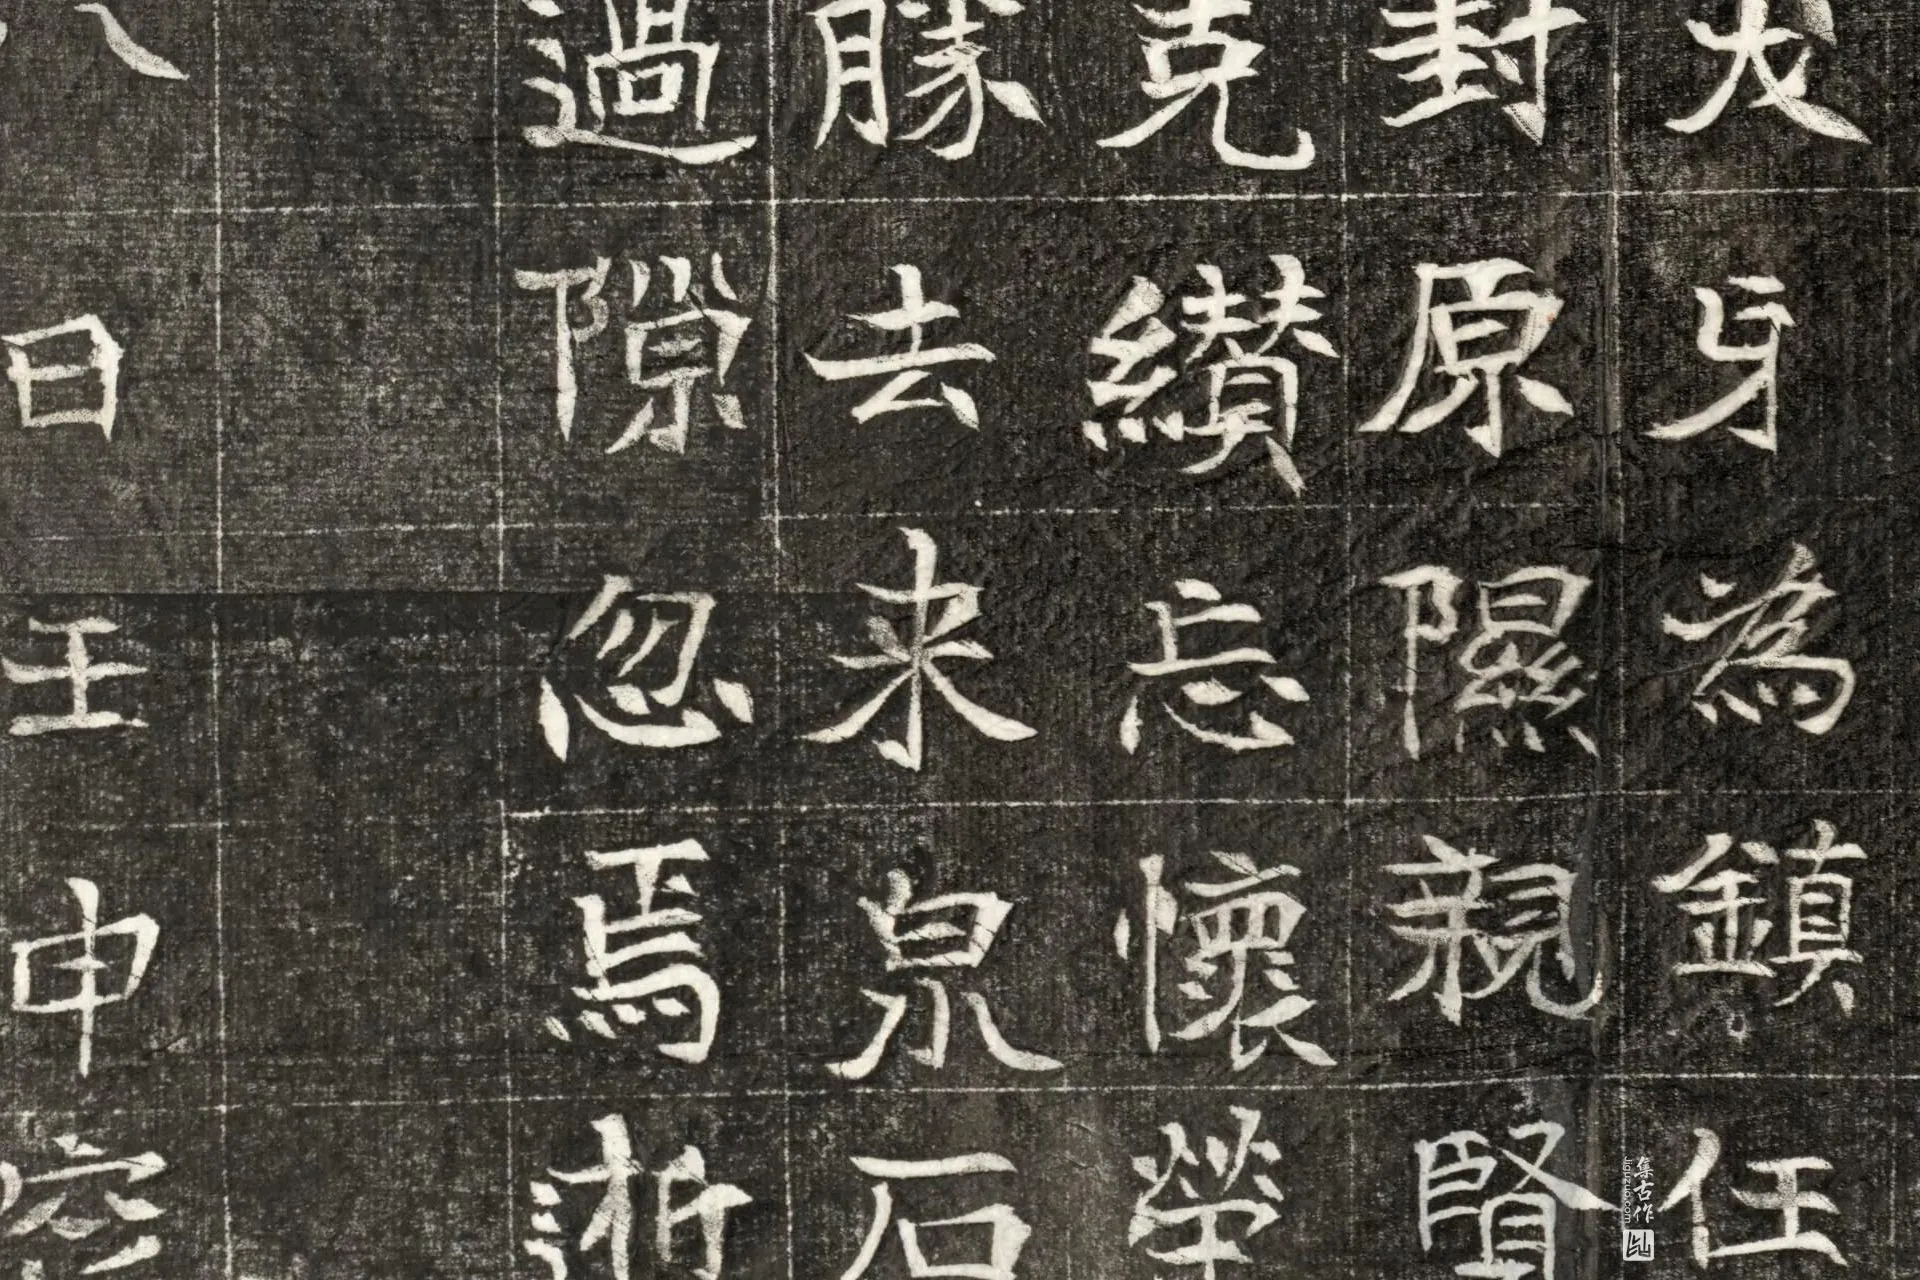 身為鎮任
封原隰親賢
克纘忘懷榮
勝去来泉石
過隙忽焉逝
八日壬申
集古作
Jiguzuo.com